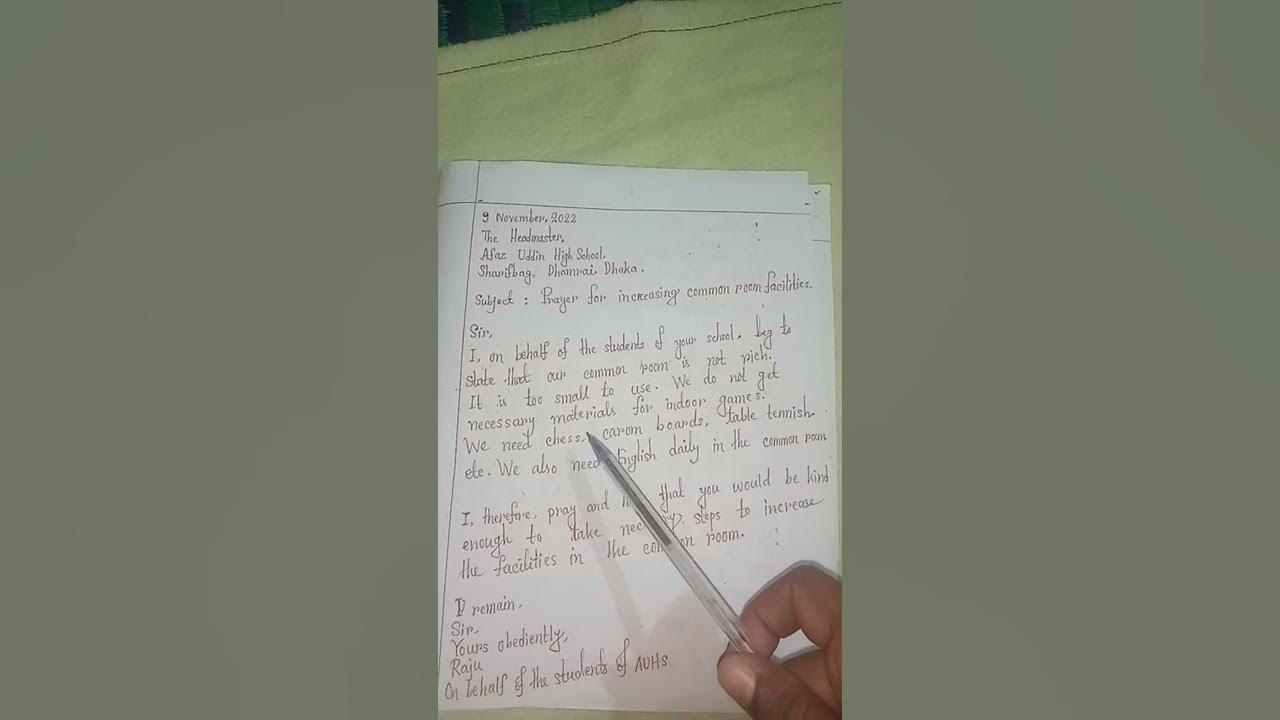 9 November, 2022
The Headmaster,
Afaz Uddin High School.
Sharifbag, Dhamrai, Dhaka.
Subject : Prayer for increasing common room facilities.
Sir,
I, on behalf of the students of your school, beg to
state that our common room is not rich.
It is too small to use. We do not get
necessary materials for indoor games.
We need chess, carom boards, table tennish
etc. We also need English daily in the common room
I, therefore, pray and that you would be kind
enough to take steps to increase
the facilities in the common room.
I remain,
Sir.
Yours obediently,
Raju
On behalf of the students of AUHS